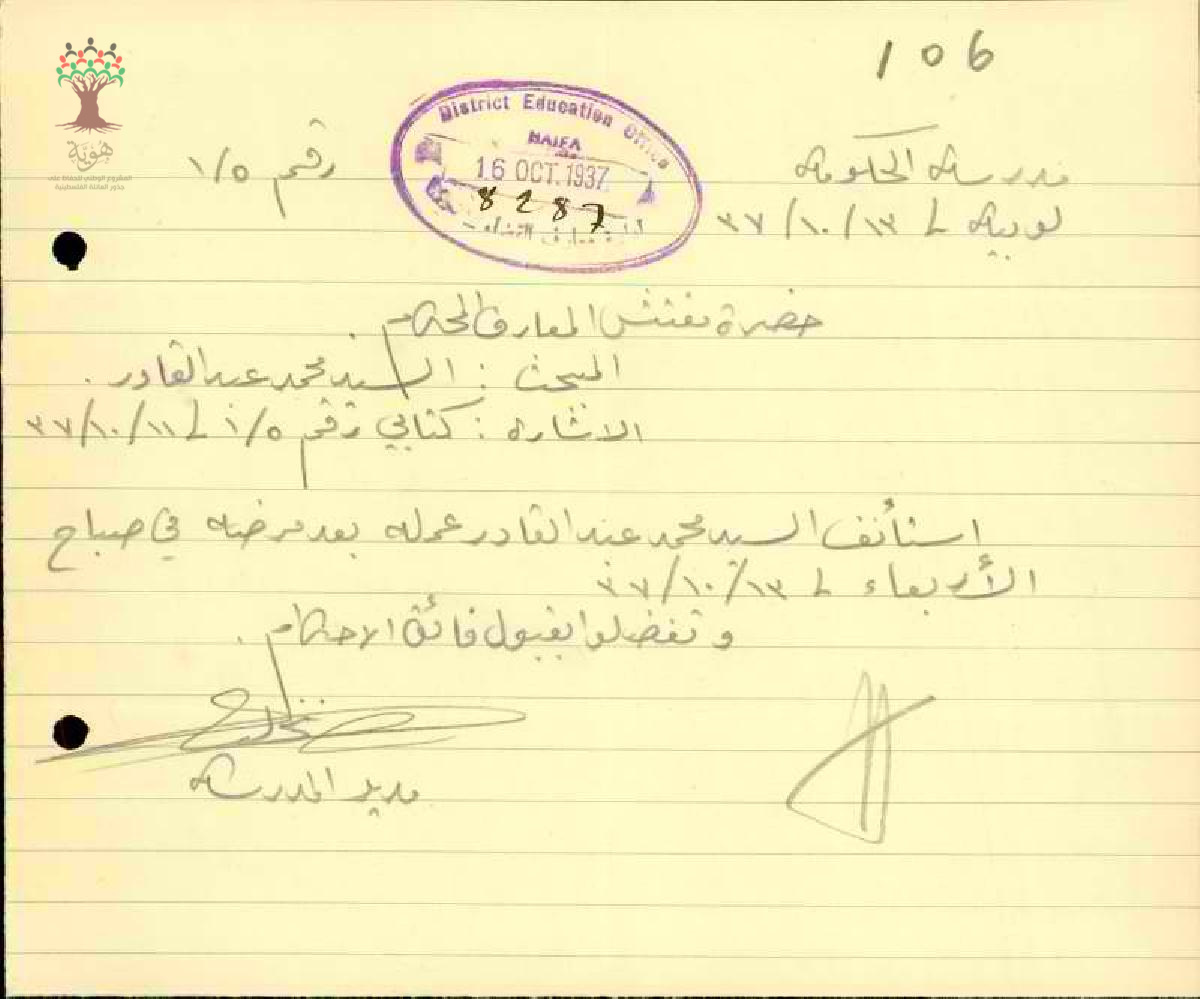 106
مدرسة الحكومة
رقم ١/٥
لوبية في ٣٧/١٠/١٣
District Education Office
HAIFA
16 OCT. 1937
8287
حضرة مفتش المعارف المحترم
المبحث : السيد محمد عبد القادر .
الاشارة : كتابي رقم ١/٥ في ٣٧/١٠/١١
استأنف السيد محمد عبد القادر عمله بعد مرضه في صباح
الأربعاء في ٣٧/١٠/١٣
وتفضلوا بقبول فائق الاحترام .
مدير المدرسة
هوية
المشروع الوطني للحفاظ على
جذور العائلة الفلسطينية